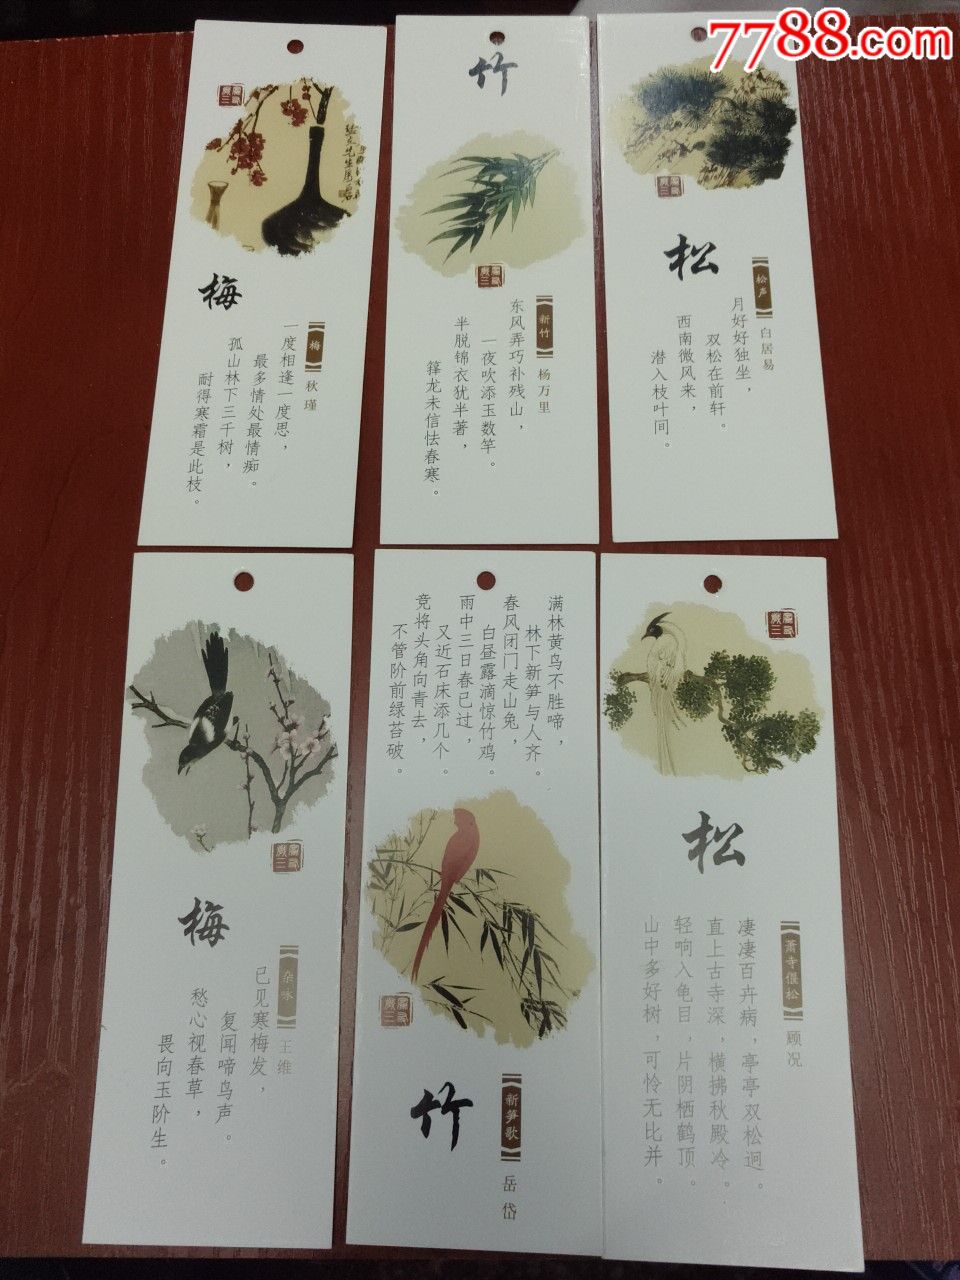 7788.com
梅
梅
秋瑾
一度相逢一度思，
最多情处最情痴。
孤山林下三千树，
耐得寒霜是此枝。
竹
新竹
杨万里
东风弄巧补残山，
一夜吹添玉数竿。
半脱锦衣犹半著，
箨龙未信怯春寒。
松
松声
白居易
月好好独坐，
双松在前轩。
西南微风来，
潜入枝叶间。
梅
杂咏
王维
已见寒梅发，
复闻啼鸟声。
愁心视春草，
畏向玉阶生。
满林黄鸟不胜啼，
林下新笋与人齐。
春风闭门走山兔，
白昼露滴惊竹鸡。
雨中三日春已过，
又近石床添几个。
竞将头角向青去，
不管阶前绿苔破。
竹
新笋歌
岳岱
松
萧寺偃松
顾况
凄凄百卉病，亭亭双松迥。
直上古寺深，横拂秋殿冷。
轻响入龟目，片阴栖鹤顶。
山中多好树，可怜无比并。